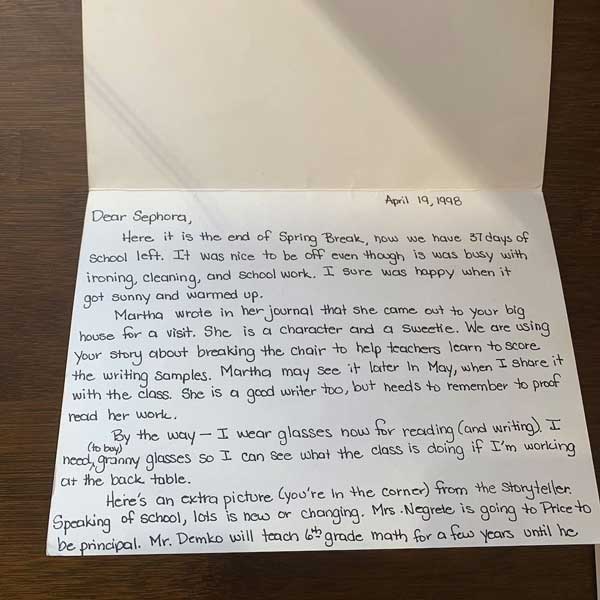 April 19, 1998
Dear Sephora,
Here it is the end of Spring Break, now we have 37 days of
school left. It was nice to be off even though is was busy with
ironing, cleaning, and school work. I sure was happy when it
got sunny and warmed up.
Martha wrote in her journal that she came out to your big
house for a visit. She is a character and a sweetie. We are using
your story about breaking the chair to help teachers learn to score
the writing samples. Martha may see it later in May, when I share it
with the class. She is a good writer too, but needs to remember to proof
read her work.
By the way — I wear glasses now for reading (and writing). I
need, (to buy) granny glasses so I can see what the class is doing if I'm working
at the back table.
Here's an extra picture (you're in the corner) from the Storyteller.
Speaking of school, lots is new or changing. Mrs. Negrete is going to Price to
be principal. Mr. Demko will teach 6th grade math for a few years until he